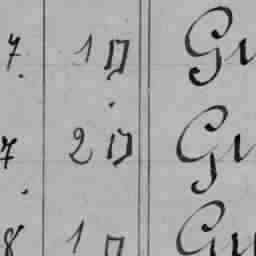 7. 1 □ Gu
7. 2 □ Gu
8 1 □ Gu